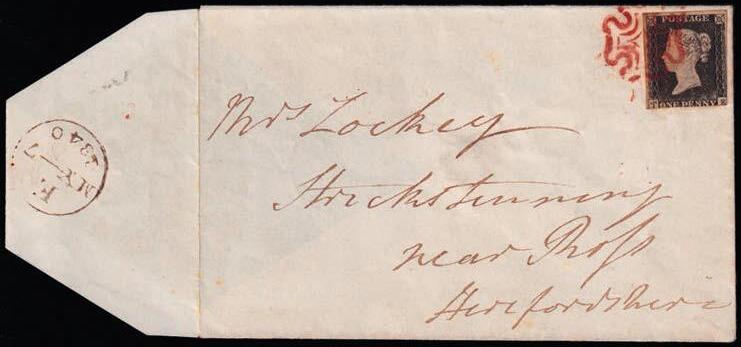 POSTAGE
ONE PENNY
Mrs Lockey
Strickstenning
near Ross
Herefordshire
MY 7
1840